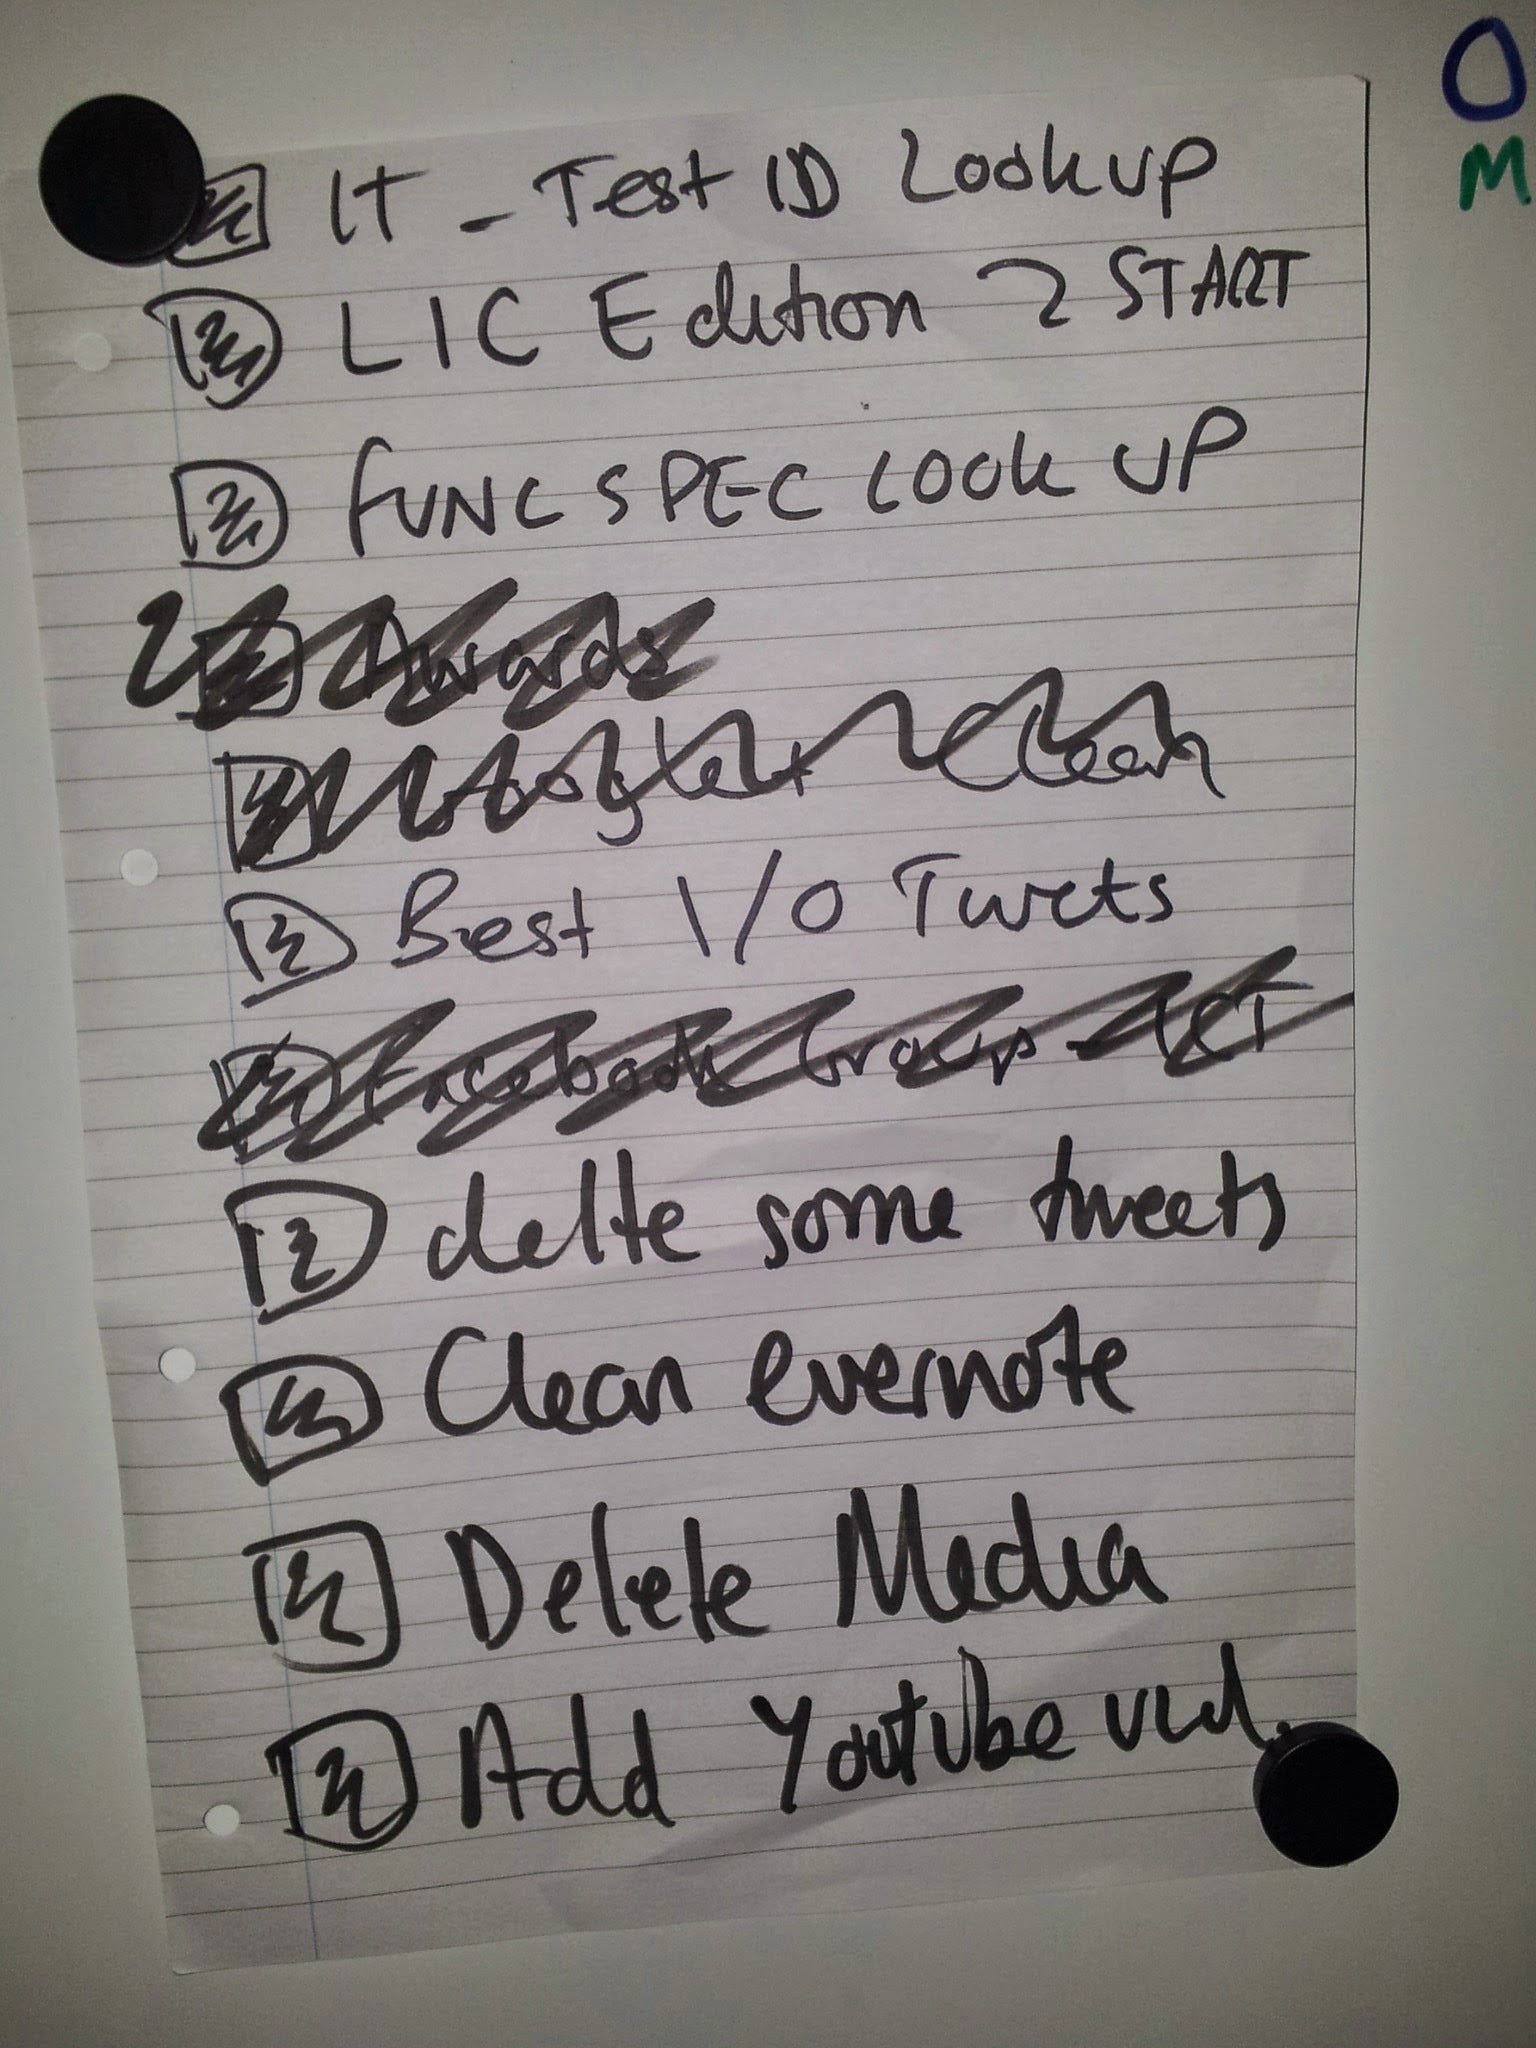 O
M
IT - Test ID Lookup
LIC Edition 2 START
FUNC SPEC LOOK UP
Awards
Clean
Best I/O Twets
Facebook Group - ICT
delte some tweets
Clean evernote
Delete Media
Add Youtube vid.